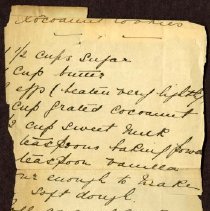 Cocoanut Cookies
1 1/2 cups sugar
1 cup butter
2 eggs (beaten very lightly
1 cup grated cocoanut
1/2 cup sweet milk
teaspoons baking powd
teaspoon vanilla
our enough to make
soft dough.